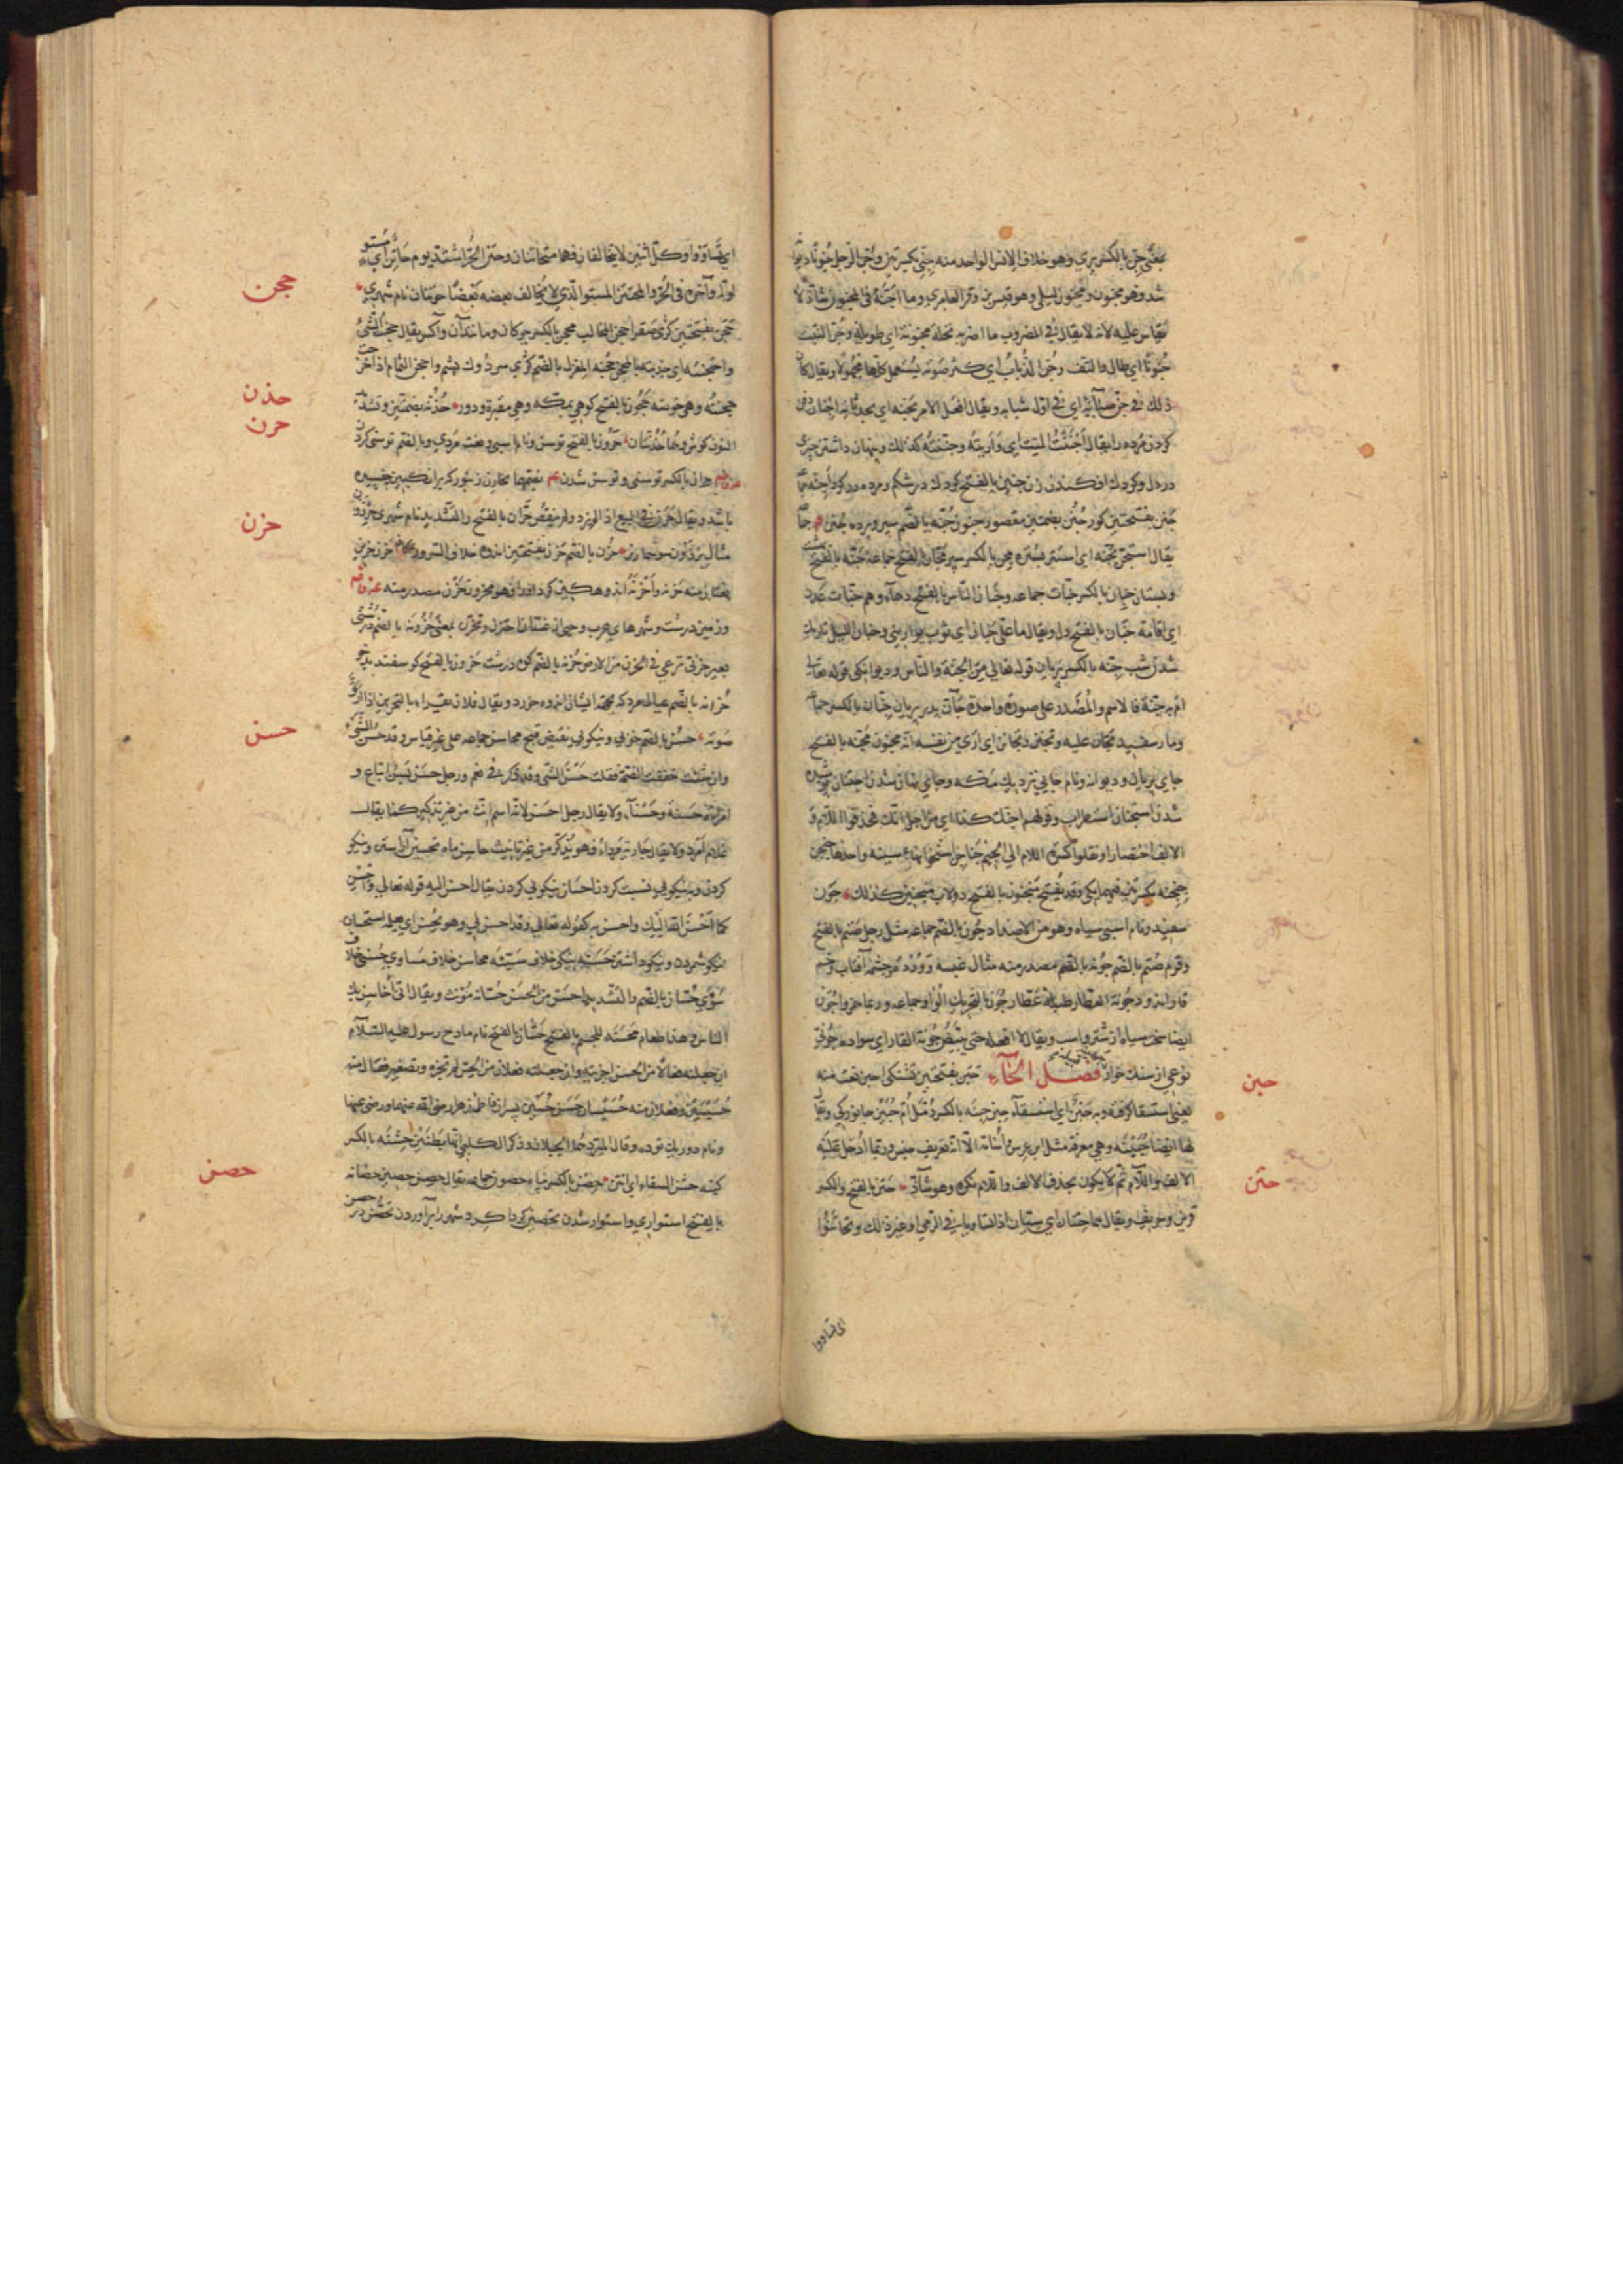 بمعنی جن بالکسر پری وهو خلاف الانس الواحد منه جنی بکسرتین وجن الرجل جنونا دیوانه
شد وهو مجنون ومجنون لیلی وهو قیس بن العامری وما اجنه فی المجنون شاذ لا
یقاس علیه لانه لا یقال فی المضروب ما اضربه نخلة مجنونة ای طویلة وجن النبت
جنونا ای طال والتف وجن الذباب ای کثر صوته یستعمل کلها مجهولا ویقال کان
ذلک فی جن صباه ای فی اول شبابه ویقال افعل الامر بجنه ای بحدثانه اجنان دفن
کردن مرده را یقال اجننت المیت ای واریته وجننته کذلک وپنهان داشتن چیزی
در دل وکودک افکندن زن جنین بالفتح کودک در شکم ومرده در کور اجنه
جنن بفتحتین کور جنن بضمتین مقصور جنون جنه بالضم سپر وپرده جنن
یقال استجن بجنة ای استتر بسترة مجن بالکسر سپر مجان بالفتح جماعة جنه بالفتح بهشت
وبستان جنان بالکسر جنات جماعه وجنان الناس بالفتح
ای اقامة جنان بالفتح دل ویقال ما علی جنان ای ثوب یوارینی وجنان اللیل تاریک
شدن شب جنه بالکسر پریان قوله تعالی من الجنة والناس ودیوانکی قوله تعالی
ام به جنة فالاسم والمصدر علی صورة واحدة جان پدر پریان جنان بالکسر جماعه
ومار سفید تجان علیه وتجنن وتجانن ای اری من نفسه انه مجنون مجنه بالفتح
جای پریان ودیوانه ونام جایی نزدیک مکه وجای پنهان شدن اجتنان پوشیده
شدن استجنان استطراب وقولهم اجنک کذا ای من اجل انک فحذفوا اللام و
الالف اختصارا ونقلوا کسرة اللام الی الجیم جناجن استخوانهای سینه واحدها جنجن
جنجنه بکسرتین فیهما وقد یفتح منجنون بالفتح دولاب منجنین کذلک جون
سفید ونام اسبی سیاه وهو من الاضداد جون بالضم جماعه مثل رجل صتم بالفتح
وقوم صتم بالضم جونه بالضم مصدر منه مثال غبسة ووردة چشمه آفتاب وخم
قار اندود جونة العطار طبله عطار جون بالتحریک الواو جماعه وربما همزوا جون
ایضا سخت سیاه از شتر واسب ویقال لا افعله حتی تبیض جونة القار ای سواده جونی
نوعی از سنک خوار فصل الحآء حبن بفتحتین تشنکی احبن نعت منه
یعنی استسقا کرفته وبه حبن ای استسقآء حبن حبنه بالکسر دمل ام حبین جانوریکی ویقال
لها ایضا حبینه وهی معرفة مثل ابن عرس واسامة الا انه تعریف جنس وربما ادخل علیه
الالف واللام ثم لا یکون بحذف الالف واللام نکرة وهو شاذ حتن بالفتح والکسر
قرین وحریف ویقال هما حتنان ای سیان اذا تساویا فی الرمی او غیر ذلک وتحاتنوا
حبن
حتن
ای تساووا
ای تساووا وکل اثنین لا یتخالفان فهما متحاتنان وحتن الحر اشتد یوم حاتن ای مستو
اوله وآخره فی الحر والمحتتن المستو الذی لا یخالف بعضه بعضا حوتنان نام شهری
حجن بفتحتین کژی صقر احجن المخالب محجن بالکسر چوکان ومانند آن وآکسر یقال حجنت الشئ
واحتجنته ای جذبته بالمحجن حجنة المغزل بالضم کژی سر دوک پشم واحجن الثمام اذا خرجت
حجنته وهی خوصته حجون بالفتح کوهی بمکه وهی مقبرة ودور حذنه بضمتین وتشدید
النون کوش وهما حذنتان حرون بالفتح توسن ونام اسبی ونعت مردی وبالضم توسنی کردن
حران بالکسر توسنی وتوسن شدن محارن زنبور که بر انکبین چفسیده
باشد ویقال حرن فی البیع اذا لم یزد ولم ینقص حران بالفتح والتشدید نام شهری حرذون
مثال برذون سوسمار نر حزن بالضم حزن بفتحتین اندوه خلاف السرور حزن حزین
نعتان منه حزنه واحزنه اندوهکین کرد او را فهو محزون تحزن مصدر منه
وزمین درشت وشهرهای عرب وحیی از غسان احتزن وتحزن بمعنی حزونه بالضم درشتی
بعیر حزنی ترعی فی الحزن من الارض حزنه بالضم کوه درشت حزون بالفتح کوسفند بدخو
حزانه بالضم عیال مرد که بجهة ایشان اندوه خورد ویقال فلان یقرا بالتحزین اذا ارق
صوته حسن بالضم خوبی ونیکویی نقیض قبح محاسن جماعه علی غیر قیاس وقد حسن الشئ
وان شئت خففت الضمة فقلت حسن الشئ وقد ذکر فی نعم ورجل حسن بسن اتباع و
امرأة حسنة وحسنآء ولا یقال رجل احسن لانه اسم انث من غیر تذکیر کما یقال
غلام امرد ولا یقال جاریة مرداء فهو یذکر من غیر تانیث حاسن ماه تحسین آراستن ونیکو
کردن وبنیکویی نسبت کردن احسان نیکویی کردن یقال احسن الیه قوله تعالی واحسن
کما احسن الله الیک واحسن به کقوله تعالی وقد احسن بی وهو یحسن ای یعلمه استحسان
نیکو شمردن ونیکو داشتن حسنه نیکی خلاف سیئه محاسن خلاف مساوی حسنی خلاف
سوءی حسان بالضم والتشدید احسن من الحسن حسانة مؤنث ویقال انی احاسن بک
الناس وهذا طعام محسنة للجسم بالفتح حسان بالفتح نام مادح رسول علیه السلام
ان جعلته فعالا من الحسن اجریته وان جعلته فعلان من الحس لم تجره وتصغیر فعال منه
حسیسین وفعلان منه حسیسان حسن حسین پسران فاطمه زهرا رضی الله عنهما ورضی عنها
ونام دو ریک توده وقال المبرد هما الجبلان وذکر الکلبی انهما بطنین حشنه بالکسر
کینه حشن السقاء ای انتن حصن بالکسر پناه حصون جماعه یقال حصن حصین حصانه
بالفتح استواری واستوار شدن تحصین کرداکرد شهر را برآوردن تحصن در حصن
حجن
حذن
حرن
حزن
حسن
حصن